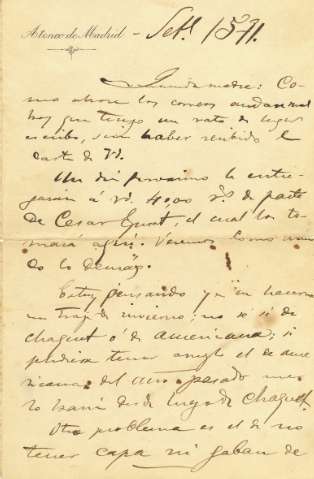 Ateneo de Madrid - Set.
Querida madre: Co-
mo ahora los correos andan mal
hoy que tengo un rato de lugar
escribo, sin haber recibido
carta de Vd.
Un dia proximo le entre-
garán á Vd. 4000 rs. de parte
de Cesar el cual los to-
mará aquí. Veremos como
lo demás.
Estoy pensando ya en hacerme
un traje de invierno; no sé si de
chaquet ó de americana; si
pudiese tener arreglo el de ame-
ricana del año pasado me
lo haria desde luego de chaquet.
Otro problema es el de no
tener capa ni gaban de